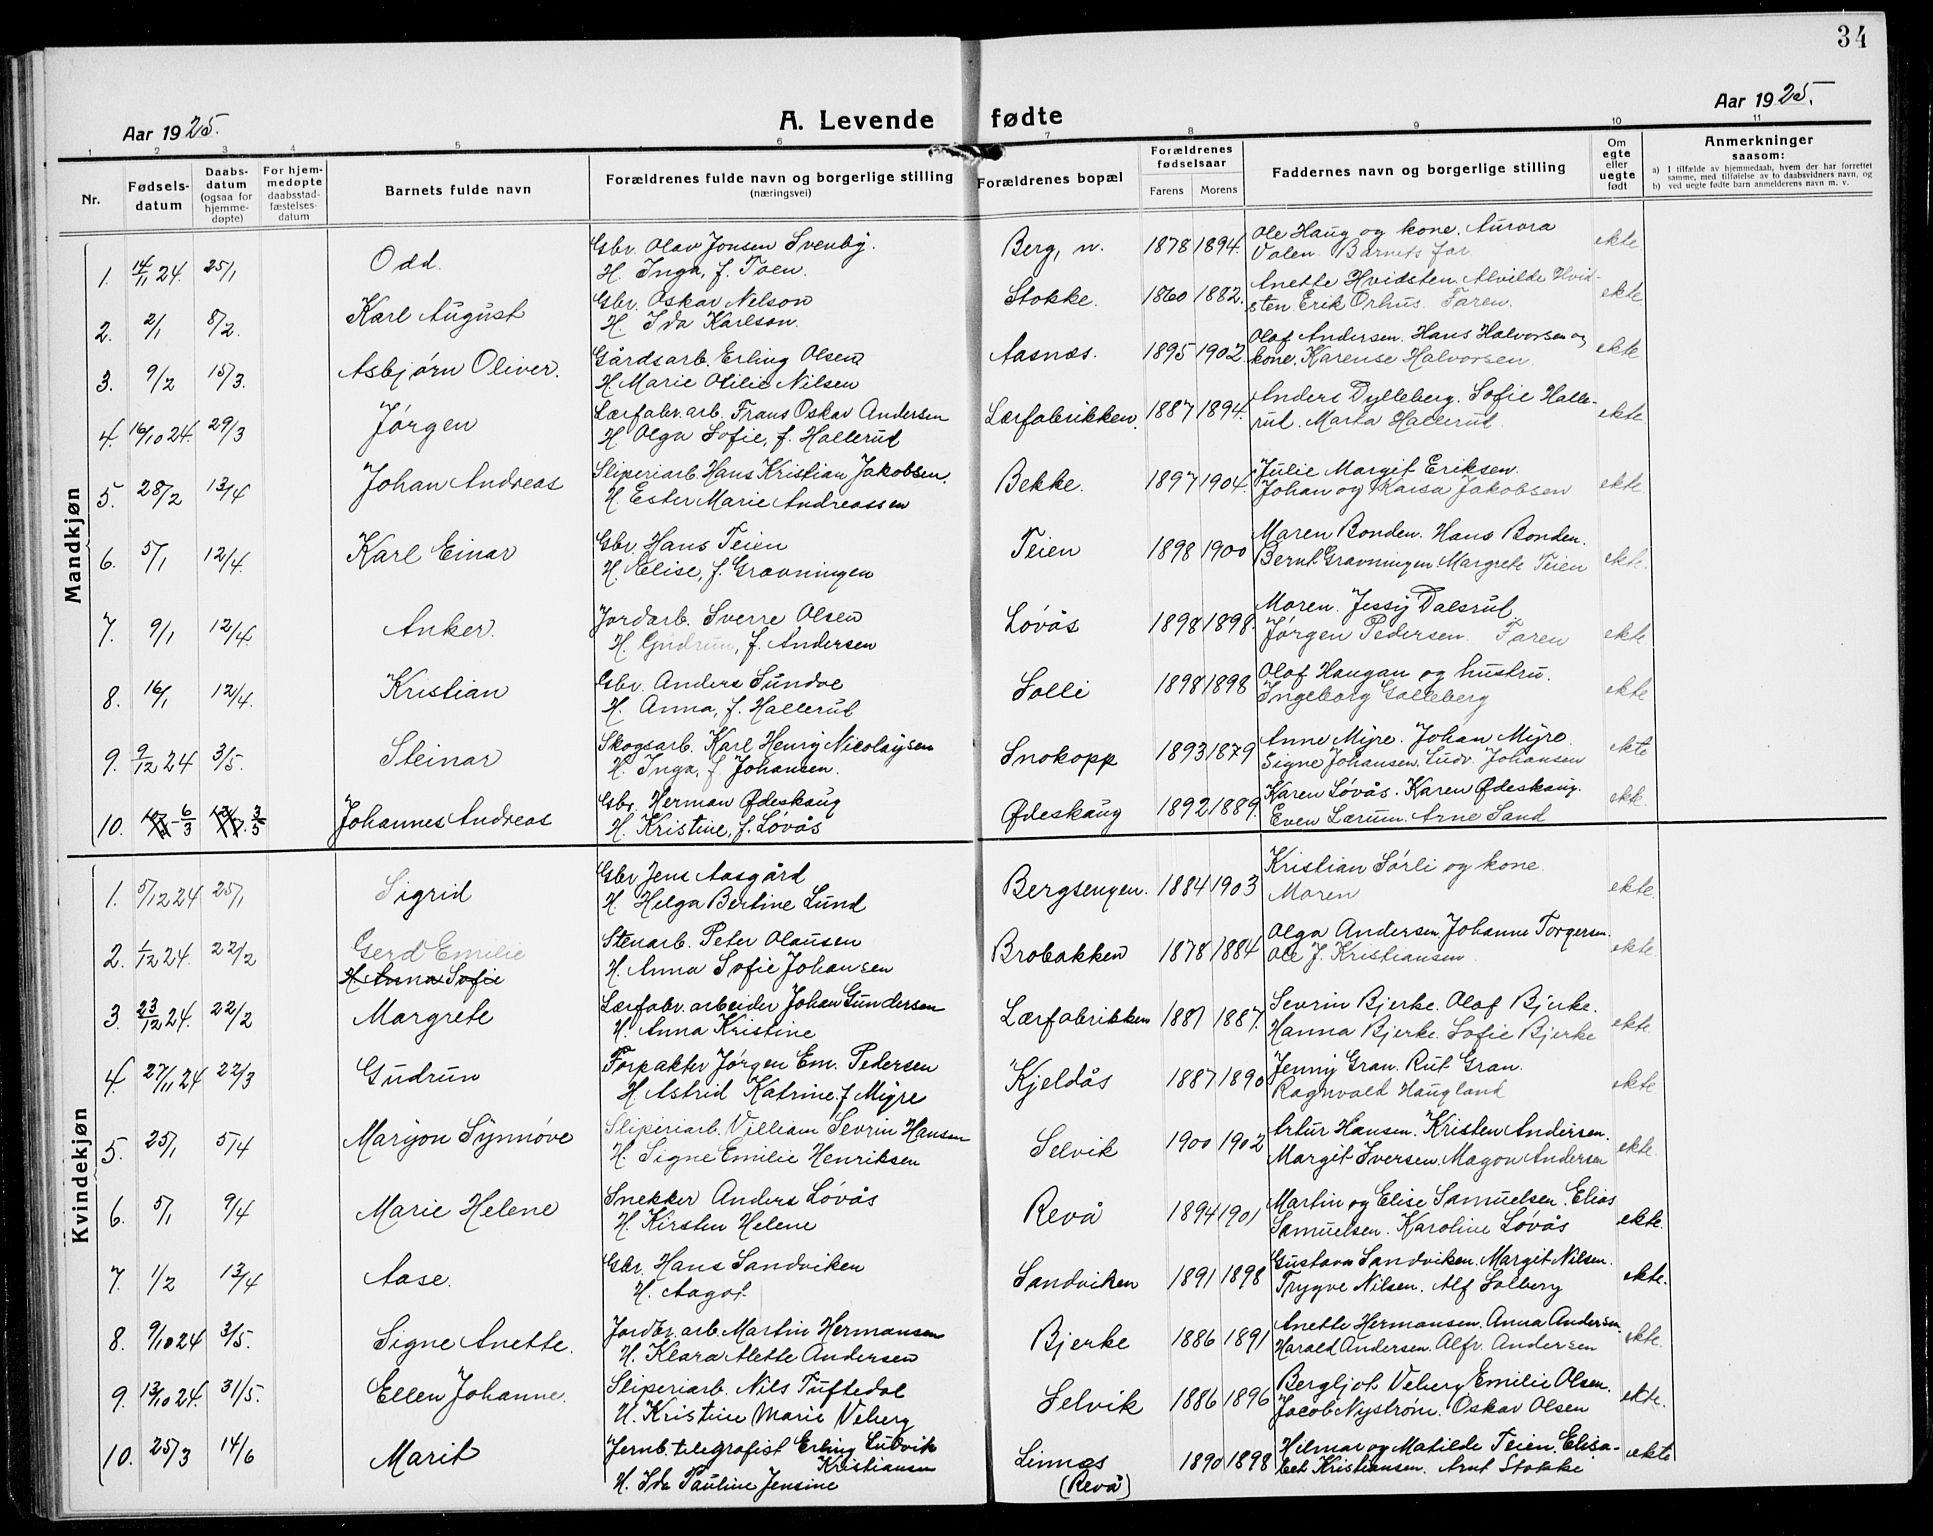 34
Aar 1925.
A. Levende fødte
Aar 1925.
1 2 3 4 5 6 7 8 9 10 11
Nr.
Fødsels-datum
Daabs-datum (ogsaa for hjemme-døpte)
For hjem-medøpte daabsstad-fæstelses-datum
Barnets fulde navn
Forældrenes fulde navn og borgerlige stilling (næringsvei)
Forældrenes bopæl
Forældrenes fødselsaar
Farens Morens
Faddernes navn og borgerlige stilling
Om egte eller uegte født
Anmerkninger saasom:
a) I tilfælde av hjemmedaab, hvem der har forrettet samme, med tilføielse av to daabsvidners navn, og
b) ved uegte fødte barn anmelderens navn m. v.
Mandkjøn
1. 14/11 24. 25/1 Odd. Gbr. Olav Jonsen Svenby. Berg, n. 1878 1894. Ole Haug og kone. Aurora ekte
H. Inga, f. Toen. Valen. Barnets far.
2. 2/1 8/2. Karl August Gbr. Oskar Nelson Stokke. 1860 1882. Anette Hvidsten. Alvilde Hvid- ekte
H. Ida Karlson. sten. Erik Orhus. Faren.
3. 9/2 15/3. Asbjørn Oliver. Gårdsarb. Erling Olsen Aasnæs. 1895 1902. Olaf Andersen. Hans Halvorsen og ekte
H. Marie Otilie Nilsen kone. Karense Halvorsen.
4. 16/10 24. 29/3 Jørgen Lærfabr. arb. Frans Oskar Andersen Lærfabrikken. 1887 1894. Anders Dylleberg. Sofie Halle- ekte
H. Olga Sofie, f. Hallerud rud. Marta Hallerud.
5. 28/2 13/4 Johan Andreas Sliperiarb. Hans Kristian Jakobsen. Bekke. 1897 1904. Julie Margit Eriksen. ekte.
H. Ester Marie Andreassen Johan og Kaisa Jakobsen
6. 5/1 12/4. Karl Einar Gbr. Hans Teien Teien 1898 1900 Maren Bonden. Hans Bonden. ekte.
H. Elise, f. Gravningen Bernt Gravningen Margrete Teien
7. 9/1 12/4. Anker. Jordarb. Sverre Olsen Løvås 1898 1898. Moren. Jessy Dalsrud ekte
H. Gudrun, f. Andersen Jørgen Pedersen. Faren
8. 16/1 12/4. Kristian Gbr. Anders Sundve Solli 1898 1898 Olaf Haugan og hustru. ekte
H. Anna, f. Hallerud Ingeborg Galleberg
9. 9/12 24 3/5. Steinar Skogsarb. Karl Henry Nicolaysen Snokopp 1893 1879 Anne Myre. Johan Myre. ekte
H. Inga, f. Johansen. Signe Johansen. Ludv. Johansen
10. 6/3 3/5 Johannes Andreas Gbr. Herman Ødeskaug Ødeskaug 1892 1889. Karen Løvås. Karen Ødeskaug. ekte.
H. Kristine, f. Løvås Even Lærum. Arne Sand
Kvindekjøn
1. 5/12 24 25/1 Sigrid Gbr Jens Aasgård Bergsengen. 1884 1903 Kristian Sørli og kone. ekte.
H Helga Bertine Lund Moren
2. 1/12 24. 22/2 Gerd Emilie Stenarb. Peter Olausen Brobakken 1878 1884 Olga Andersen. Johanne Torgersen. ekte.
H Anna Sofie H. Anna Sofie Johansen Ole J. Kristiansen
3. 23/12 24. 22/2 Margrete Lærfabr. arbeider Johan Gundersen Lærfabrikken 1881 1887. Sevrin Bjerke. Olaf Bjerke. ekte.
H. Anna Kristine Hanna Bjerke. Sofie Bjerke
4. 27/11 24 22/3 Gudrun Forpakter Jørgen Em. Pedersen Kjeldås 1887 1890 Jenny Gran. Rut Gran. ekte
H Astrid Katrine f Myre Ragnvald Haugland
5. 25/1 5/4 Maryon Synnøve Sliperiarb. Villiam Sevrin Hansen Selvik 1900 1902 Artur Hansen. Kristen Andersen. ekte.
H. Signe Emilie Henriksen Margit Iversen. Magon Andersen
6. 5/1 9/4 Marie Helene Snekker Anders Løvås Revå 1894 1901 Martin og Elise Samuelsen. Elias ekte.
H. Kirsten Helene Samuelsen. Karoline Løvås
7. 1/2 13/4 Aase. Gbr. Hans Sandviken Sandviken 1891 1898 Gustava Sandviken. Margit Nilsen. ekte.
H. Aagot Trygve Nilsen. Alf Solberg
8. 9/10 24 3/5. Signe Anette. Jordbr. arb. Martin Hermansen Bjerke 1886 1891 Anette Hermansen. Anna Andersen. ekte.
H. Klara Alette Andersen Harald Andersen. Alfr. Andersen
9. 13/10 24. 31/5. Ellen Johanne. Sliperiarb. Nils Tuftedal Selvik 1886 1896 Bergljot Veberg. Emilie Olsen. ekte.
H. Kristine Marie Veberg Jacob Nystrøm. Oskar Olsen
10. 25/3 14/6 Marit Jernb. telegrafist Erling Ludvik Linnæs 1890 1898 Hilmar og Matilde Teien. Elisa- ekte
Kristiansen
H. Ida Pauline Jensine (Revå) bet Kristiansen. Arnt Stokke